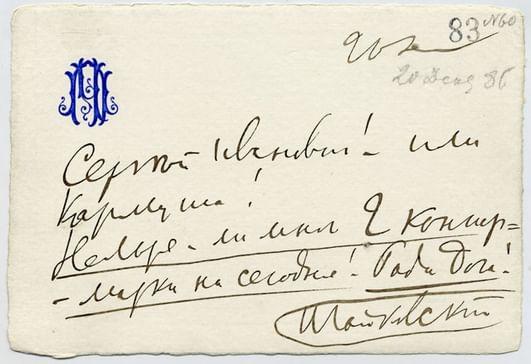 83 №60
20 Дек
20 Дек 86
Сергей Иванович! или
Кармуша!
Нельзя-ли мне 2 контр-
-марки на сегодня! Ради Бога!
П. Чайковский